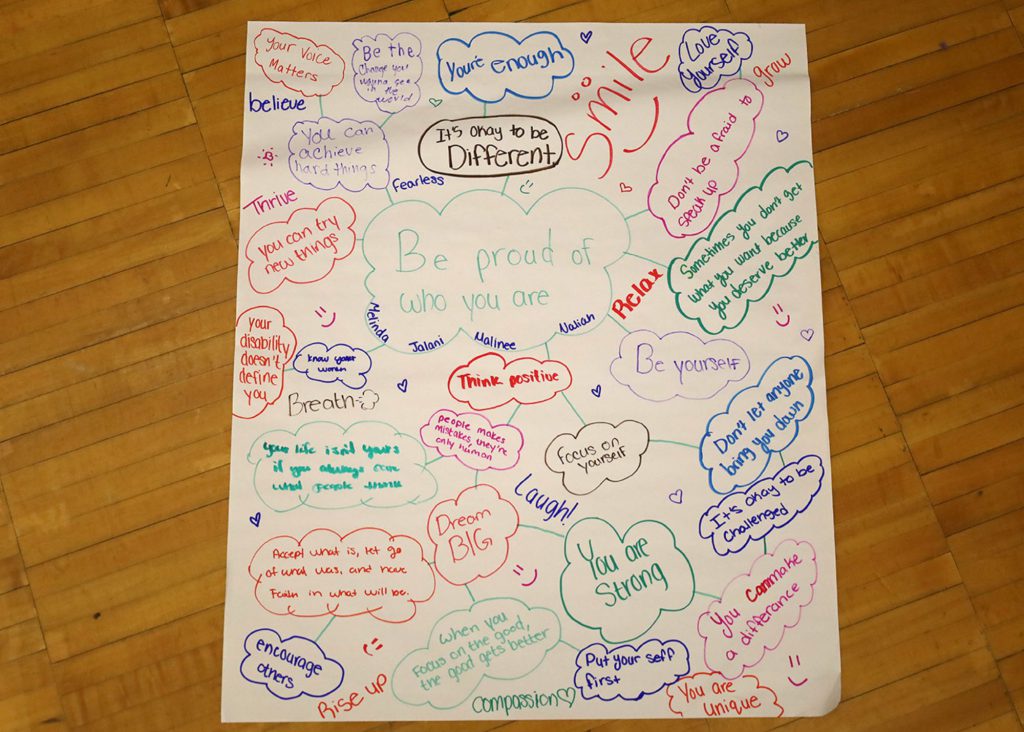 Your Voice
Matters
Be the
Change you
wanna see
in the
world
You're enough
Smile
Love
Yourself
grow
believe
You can
achieve
hard things
It's okay to be
Different
Don't be afraid to
speak up
Fearless
Thrive
You can try
new things
Be proud of
who you are
Melinda
Jalani
Malinee
Naliah
Sometimes you don't get
what you want because
you deserve better
Relax
your
disability
doesn't
define
you
know your
Breath
Think positive
Be yourself
people makes
mistakes, they're
only human
Focus on
yourself
Don't let anyone
bring you down
your life isn't yours
if you always care
what people think
Laugh!
It's okay to be
challenged
Dream
BIG
Accept what is, let go
of what was, and have
Faith in what will be.
You are
Strong
You can make
a differance
when you
Focus on the good,
the good gets better
encourage
others
Put your self
first
Rise up
Compassion
You are
unique